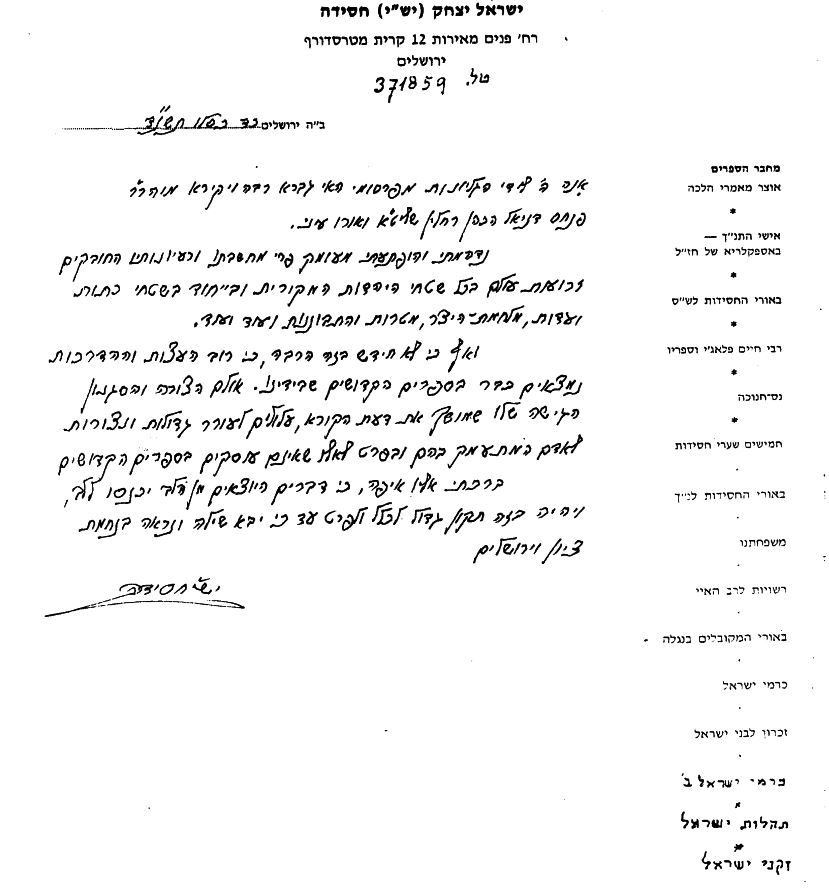 ישראל יצחק (יש"י) חסידה
רח' פנים מאירות 12 קרית מטרסדורף
ירושלים
טל. 371859
ב"ה ירושלים כד כסלו תשנ"ד
אנה ה' לידי הגליונות מפרסומי האי גברא רבה ויקירא מוהר"ר
פנחס דניאל הכהן שליט"א ואורו עיני.
נדהמתי והופתעתי מעומק פרי מחשבתו ורעיונותיו החובקים
זרועות עולם בכל שטחי היהדות המקורית ובייחוד בשטחי כתות
ועדות, מלחמת-היצר, מטרות והתבוננות ועוד ועוד.
ואף כי לא חידש בזה הרבה, כי רוב העצות וההדרכות
נמצאים כבר בספרים הקדושים שבידינו. אולם הצורה והסגנון
הגישה שלו שמושך את דעת הקורא, עלולים לעורר גדולות ונצורות
לאדם המתעמק בהם ובפרט לאלו שאינם עוסקים בספרים הקדושים
ברכתי אליו איפה, כי דברים היוצאים מן הלב יכנסו ללב,
ויהיה בזה תקון גדול לכלל ולפרט עד כי יבא שילה ונראה בנחמת
ציון וירושלים
יש"י חסידה
מחבר הספרים
אוצר מאמרי הלכה
*
אישי התנ"ך —
באספקלריא של חז"ל
*
באורי החסידות לש"ס
*
רבי חיים פלאג'י וספריו
*
נס-חנוכה
*
חמישים שערי חסידות
באורי החסידות לנ"ך
משפחתנו
רשויות לרב האיי
באורי המקובלים בנגלה
כרמי ישראל
זכרון לבני ישראל
כרמי ישראל ב'
*
תהלות ישראל
*
זקני ישראל